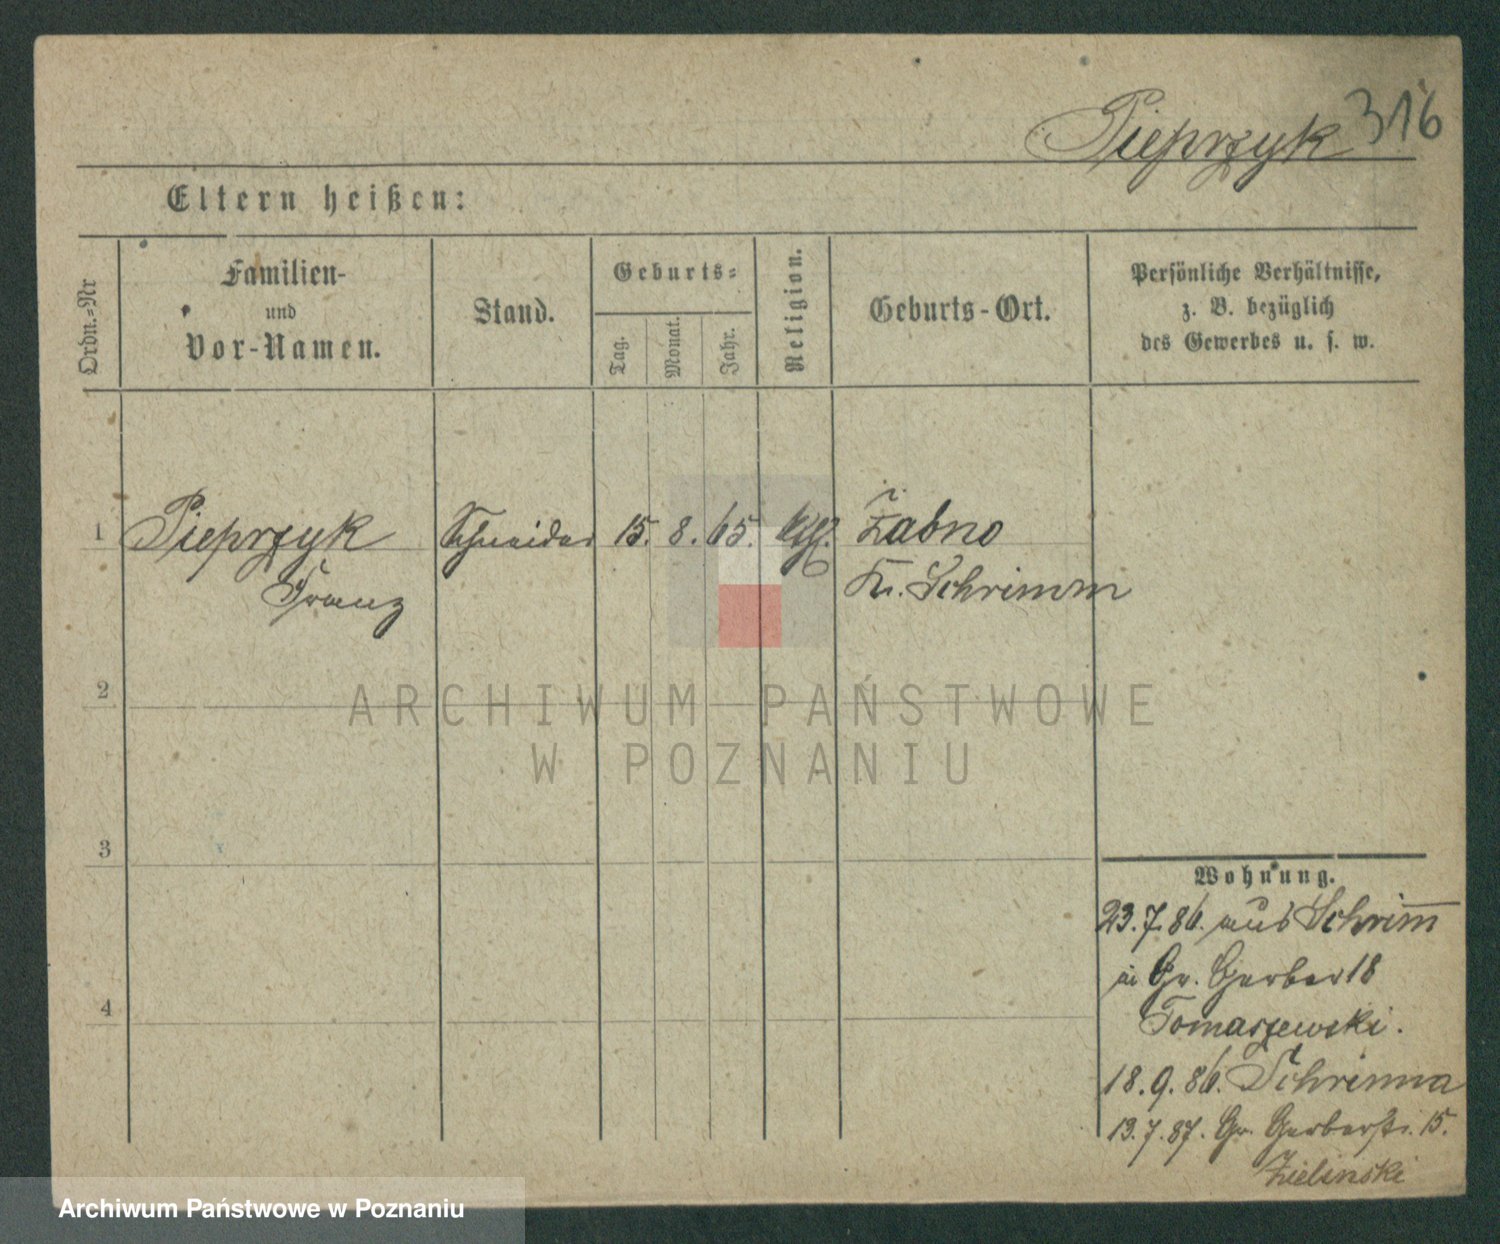 Pieprzyk 316
Eltern heißen:
Ordn.=Nr
Familien-
und
Vor-Namen.
Stand.
Geburts=
Tag.
Monat.
Jahr.
Religion.
Geburts-Ort.
Persönliche Verhältnisse,
z. B. bezüglich
des Gewerbes u. s. w.
1 Pieprzyk Schneider 15. 8. 65. kth. Żabno
Franz Kr. Schrimm
2
ARCHIWUM PAŃSTWOWE
W POZNANIU
3
4
Wohnung.
23.7.86. aus Schrim̅
in Gr. Gerber 18
Tomaszewski.
18.9.86. Schrimm
13.7.87. Gr. Gerberstr. 15.
Zielinski
Archiwum Państwowe w Poznaniu